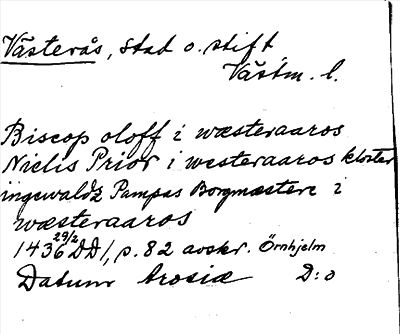 Västerås, stad o. stift,
Västm. l.
Biscop oloff i wæsteraaros
Nielis Prior i westeraaros kloster
ingewaldz Pampas Borgmæstere i
wæsteraaros
1436 29/2 DD1, p. 82 avskr. Örnhjelm
Datum Arosiæ D:o